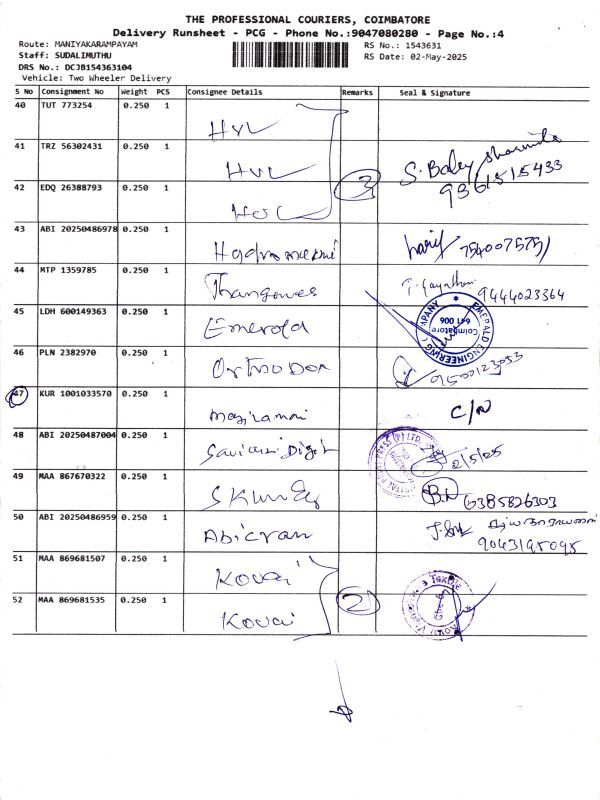 THE PROFESSIONAL COURIERS, COIMBATORE
Delivery Runsheet - PCG - Phone No.:9047080280 - Page No.:4
Route: MANIYAKARAMPAYAM
RS No.: 1543631
Staff: SUDALIMUTHU
RS Date: 02-May-2025
DRS No.: DCJB154363104
Vehicle: Two Wheeler Delivery
S No Consignment No Weight PCS Consignee Details Remarks Seal & Signature
40 TUT 773254 0.250 1 HVL
41 TRZ 56302431 0.250 1 HVL
42 EDQ 26388793 0.250 1 3 S. Baley Sharmila 9361515433
43 ABI 20250486978 0.250 1
44 MTP 1359785 0.250 1 9444023364
45 LDH 600149363 0.250 1 Emerald EMERALD ENGINEERING COMPANY Coimbatore 641 006
46 PLN 2382970 0.250 1 9500123053
47 KUR 1001033570 0.250 1 C/N
48 ABI 20250487004 0.250 1 2/5/25
49 MAA 867670322 0.250 1 B.N 6385826303
50 ABI 20250486959 0.250 1 9043195095
51 MAA 869681507 0.250 1 Kovai
52 MAA 869681535 0.250 1 Kovai 2